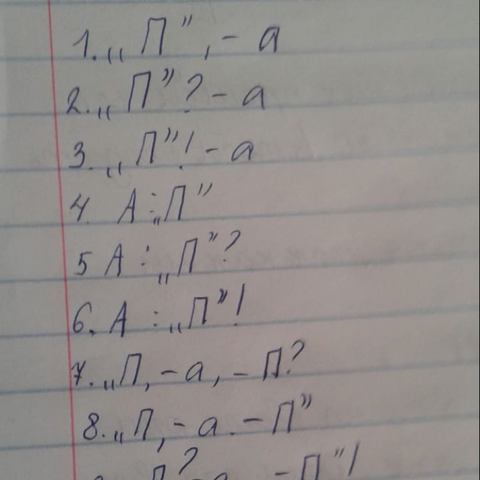 1. „П”, - а
2. „П”? - а
3. „П”! - а
4. А: „П”
5 А: „П”?
6. А: „П”!
7. „П, - а, - П?
8. „П, - а. - П”
П? - а, - П”!